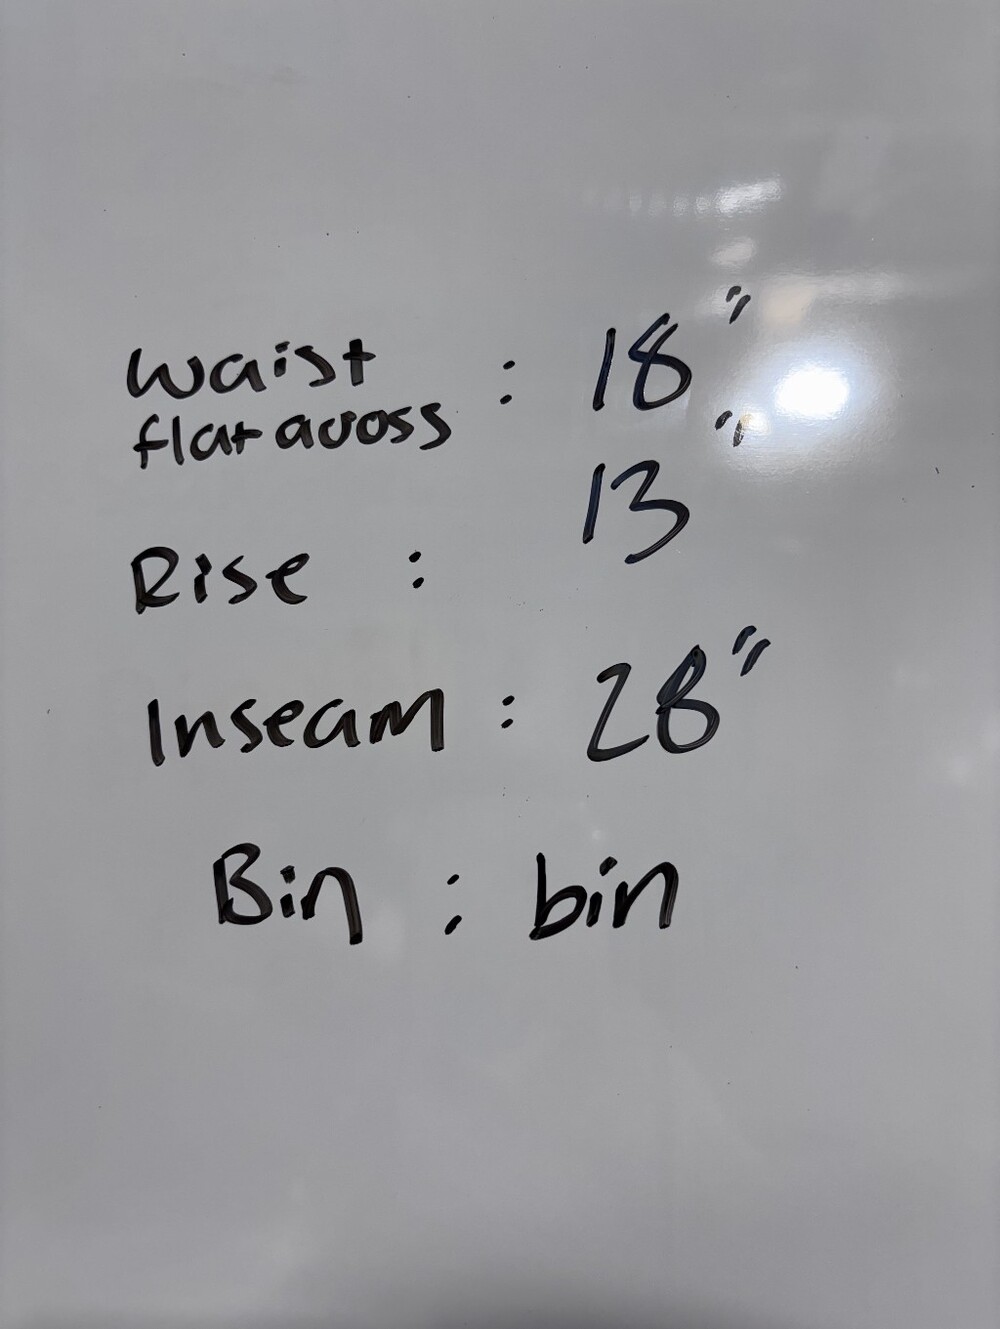 Waist : 18"
flat across
Rise : 13"
Inseam : 28"
Bin : bin